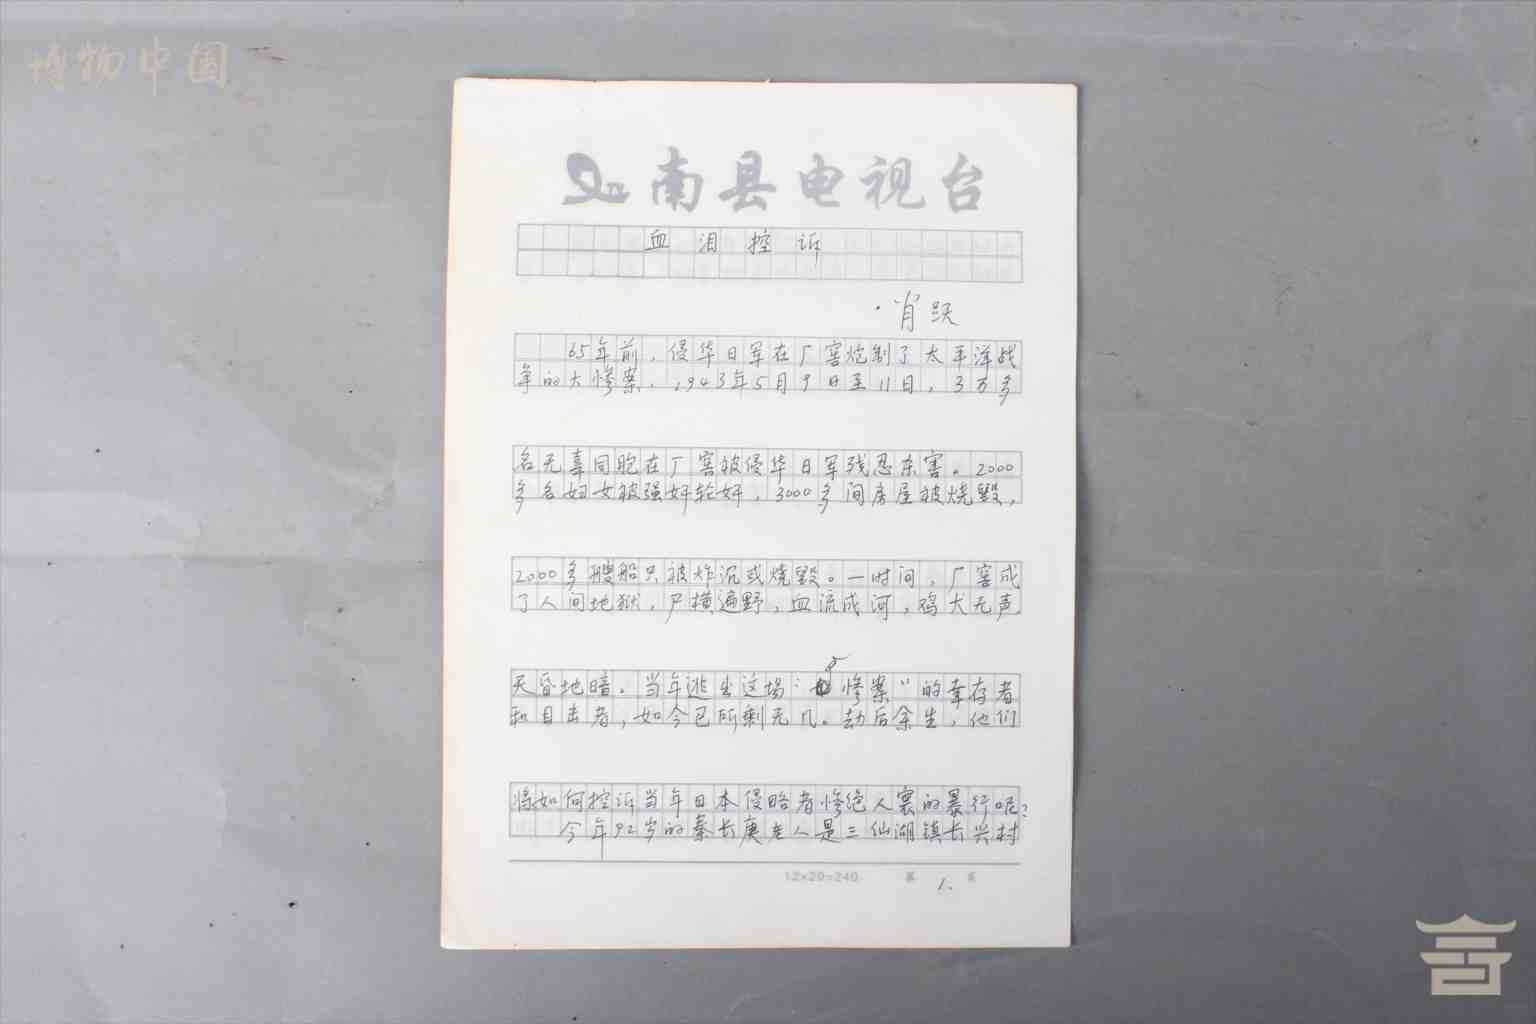 博物中国
南县电视台
血泪控诉
·肖跃
65年前，侵华日军在厂窖炮制了太平洋战
争的大惨案，1943年5月9日至11日，3万多
名无辜同胞在厂窖被侵华日军残忍杀害。2000
多名妇女被强奸轮奸，3000多间房屋被烧毁，
2000多艘船只被炸沉或烧毁。一时间，厂窖成
了人间地狱，尸横遍野，血流成河，鸡犬无声
天昏地暗。当年逃出这场“惨案”的幸存者
和目击者，如今已所剩无几。劫后余生，他们
将如何控诉当年日本侵略者惨绝人寰的暴行呢？
今年92岁的秦长庚老人是三仙湖镇长兴村
12×20=240 第 1. 页